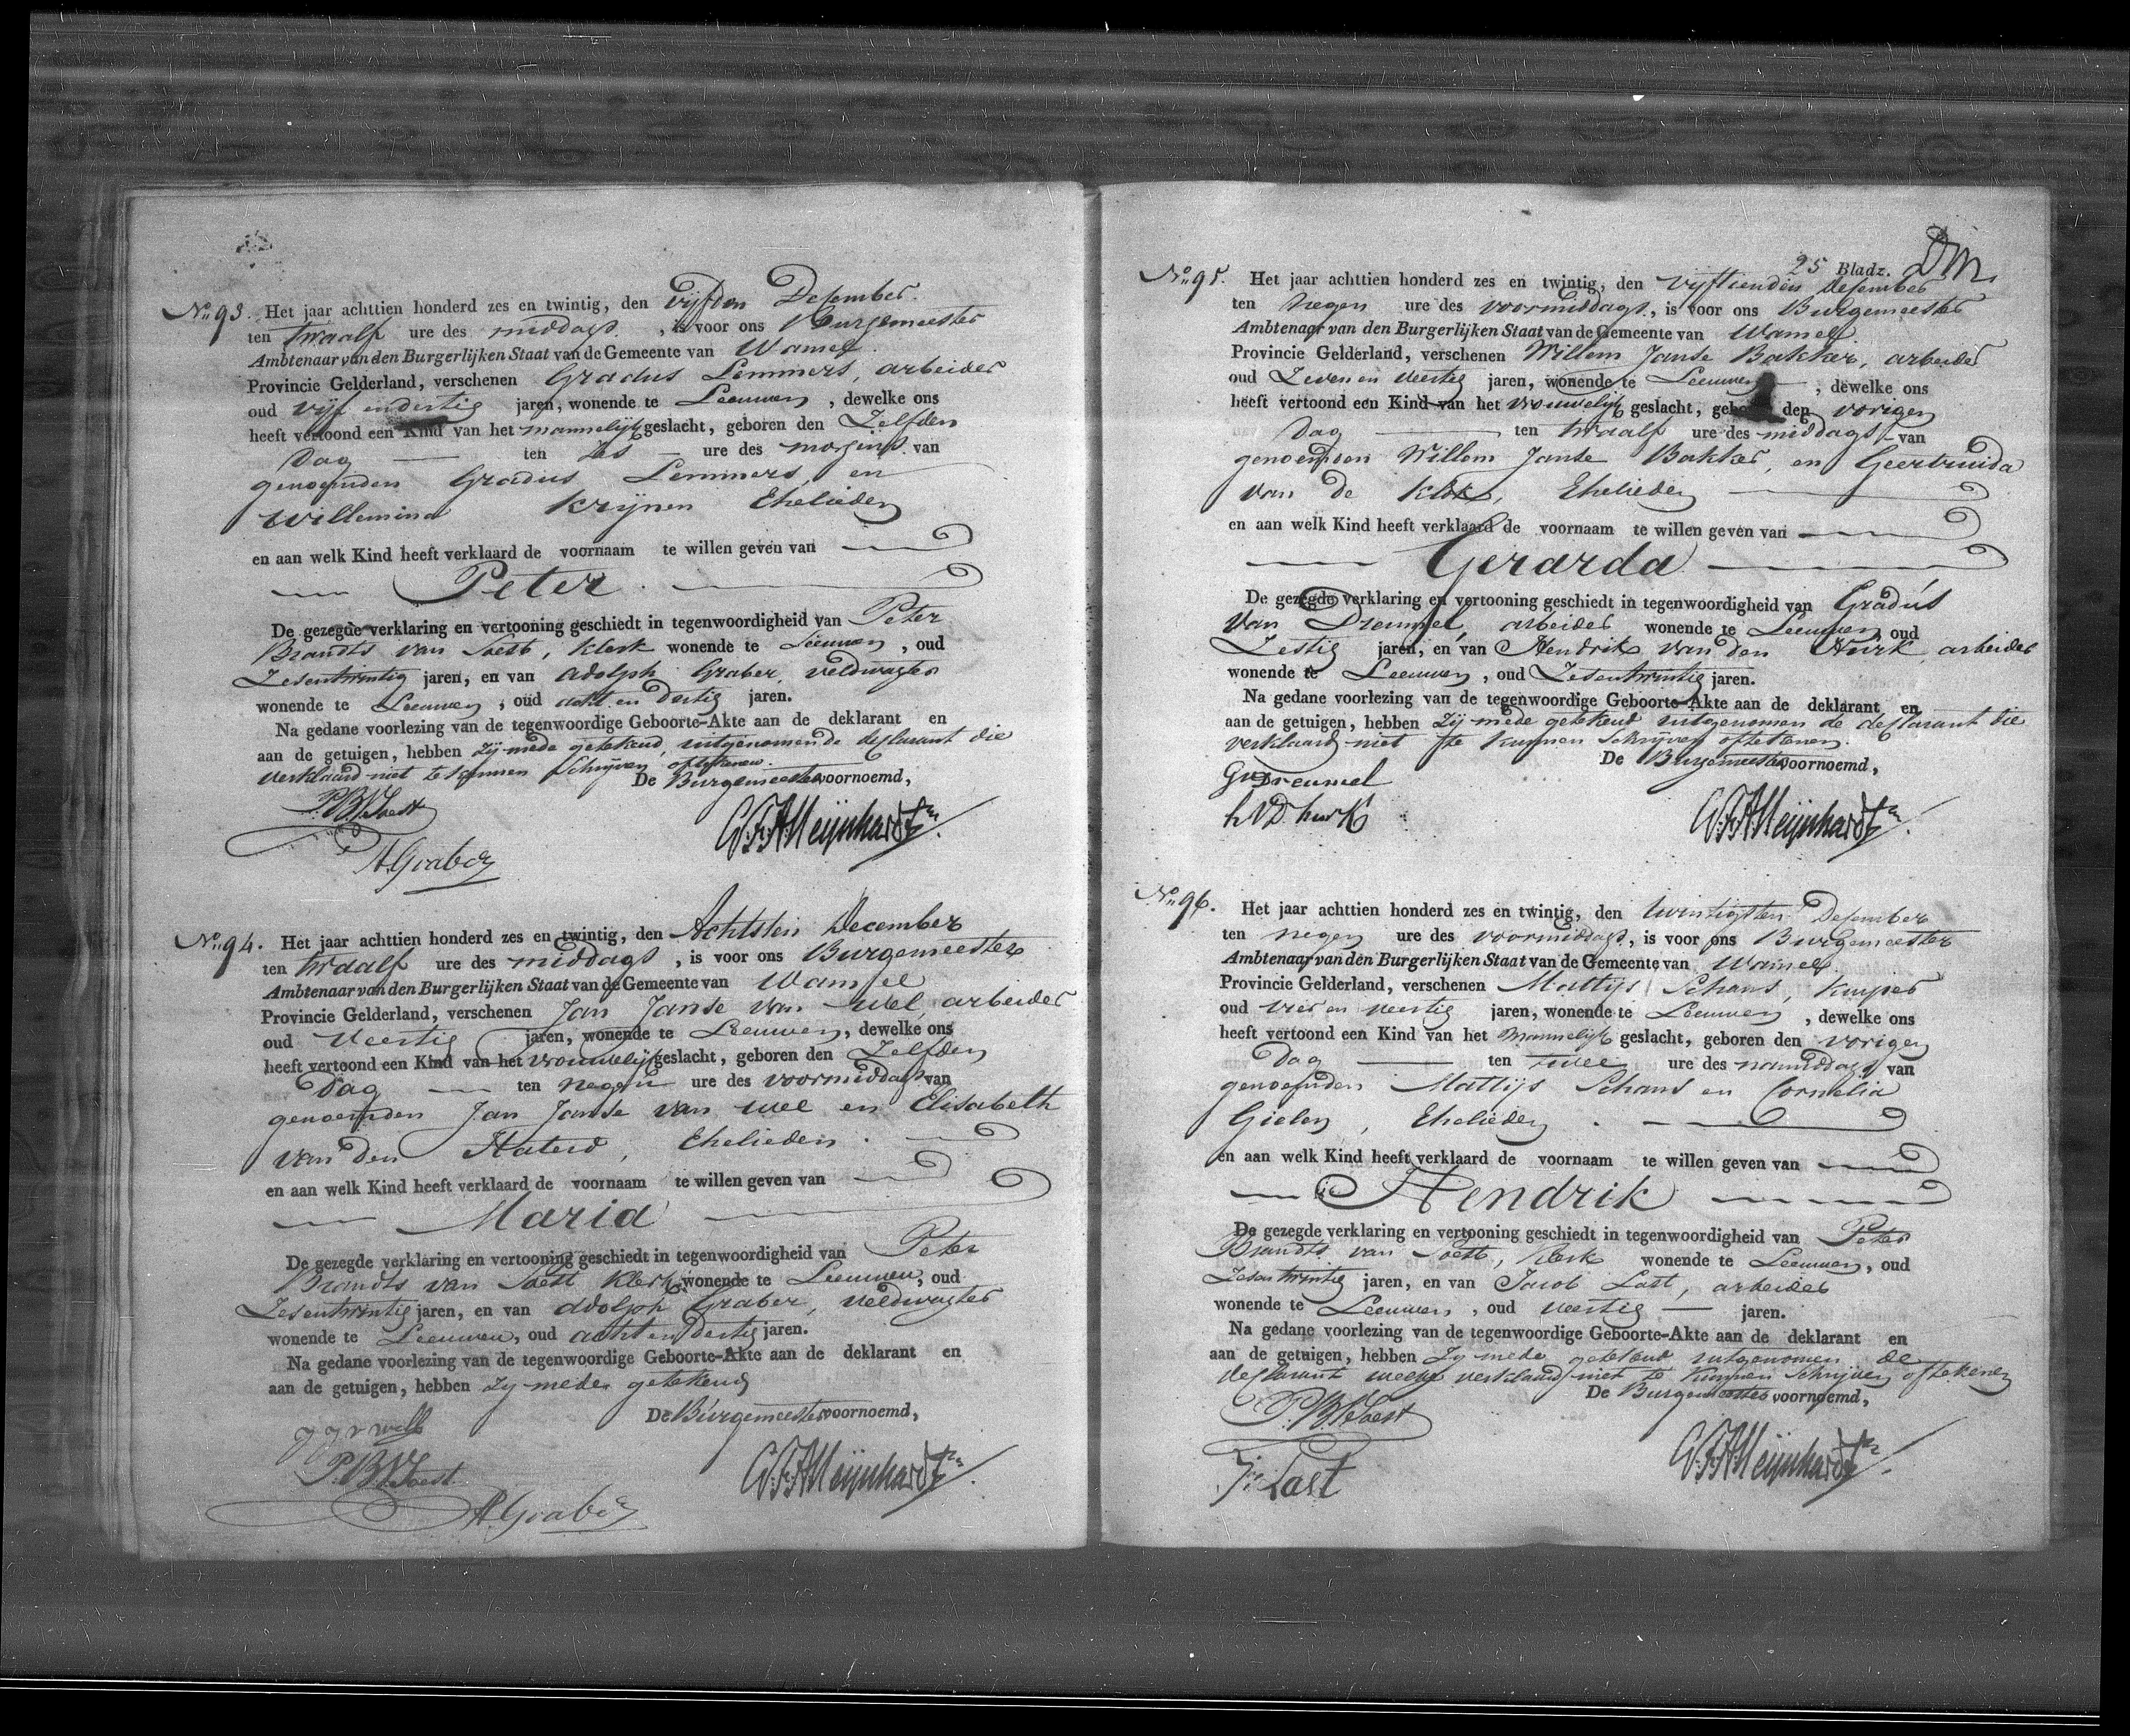 No. 93. Het jaar achttien honderd zes en twintig, den vijfden Desember
ten twaalf ure des middags, is voor ons Burgemeester
Ambtenaar van den Burgerlijken Staat van de Gemeente van Wamel
Provincie Gelderland, verschenen Gradus Lemmers, arbeider
oud vijf en dertig jaren, wonende te Leeuwen, dewelke ons
heeft vertoond een Kind van het mannelijk geslacht, geboren den Zelfden
Dag ten zes ure des morgens van
genoemden Gradus Lemmers, en
Willemina Krijnen Ehelieden
en aan welk Kind heeft verklaard de voornaam te willen geven van
Peter
De gezegde verklaring en vertooning geschiedt in tegenwoordigheid van Peter
Brandts van Soest, Klerk wonende te Leeuwen, oud
Zesentwintig jaren, en van Adolph Graber, veldwagter
wonende te Leeuwen, oud acht en dertig jaren.
Na gedane voorlezing van de tegenwoordige Geboorte-Akte aan de deklarant en
aan de getuigen, hebben zij mede getekend, uitgenomen de deklarant die
verklaard niet te kunnen schrijven of tekenen.
De Burgemeester voornoemd,
P.B.V. Soest
A. Graber
C.F.A. Meijnhardt
No. 94. Het jaar achttien honderd zes en twintig, den Achtsten December
ten twaalf ure des middags, is voor ons Burgemeester
Ambtenaar van den Burgerlijken Staat van de Gemeente van Wamel
Provincie Gelderland, verschenen Jan Janse van wel, arbeider
oud Veertig jaren, wonende te Leeuwen, dewelke ons
heeft vertoond een Kind van het vrouwelijk geslacht, geboren den Zelfden
Dag ten negen ure des voormiddags van
genoemden Jan Janse van wel en Elisabeth
van den Haterd, Ehelieden.
en aan welk Kind heeft verklaard de voornaam te willen geven van
Maria
De gezegde verklaring en vertooning geschiedt in tegenwoordigheid van Peter
Brandts van Soest Klerk wonende te Leeuwen, oud
Zesentwintig jaren, en van Adolph Graber, veldwagter
wonende te Leeuwen, oud acht en dertig jaren.
Na gedane voorlezing van de tegenwoordige Geboorte-Akte aan de deklarant en
aan de getuigen, hebben zij mede getekend
De Burgemeester voornoemd,
J J v well
P.B.V. Soest
A. Graber
C.F.A. Meijnhardt
25 Bladz.
No. 95. Het jaar achttien honderd zes en twintig, den vijftienden desember
ten negen ure des voormiddags, is voor ons Burgemeester
Ambtenaar van den Burgerlijken Staat van de Gemeente van Wamel
Provincie Gelderland, verschenen Willem Janse Bakker, arbeider
oud Zeven en veertig jaren, wonende te Leeuwen, dewelke ons
heeft vertoond een Kind van het vrouwelijk geslacht, geboren den vorigen
Dag ten twaalf ure des middags van
genoemden Willem Janse Bakker, en Geertruida
van de Klok, Ehelieden
en aan welk Kind heeft verklaard de voornaam te willen geven van
Gerarda
De gezegde verklaring en vertooning geschiedt in tegenwoordigheid van Gradus
van Dreumel, arbeider wonende te Leeuwen, oud
Zestig jaren, en van Hendrik van den Hurk, arbeider
wonende te Leeuwen, oud Zesentwintig jaren.
Na gedane voorlezing van de tegenwoordige Geboorte-Akte aan de deklarant en
aan de getuigen, hebben zij mede getekend uitgenomen de deklarant die
verklaard niet te kunnen schrijven of tekenen.
De Burgemeester voornoemd,
GvDreumel
h V D hurk
C.F.A. Meijnhardt
No. 96. Het jaar achttien honderd zes en twintig, den twintigsten Desember
ten negen ure des voormiddags, is voor ons Burgemeester
Ambtenaar van den Burgerlijken Staat van de Gemeente van Wamel
Provincie Gelderland, verschenen Mattijs Schans, Kuiper
oud vier en veertig jaren, wonende te Leeuwen, dewelke ons
heeft vertoond een Kind van het Mannelijk geslacht, geboren den vorigen
Dag ten twee ure des namiddags van
genoemden Mattijs Schans en Cornelia
Gielen, Ehelieden.
en aan welk Kind heeft verklaard de voornaam te willen geven van
Hendrik
De gezegde verklaring en vertooning geschiedt in tegenwoordigheid van Peter
Brandts van Soest, Klerk wonende te Leeuwen, oud
Zesentwintig jaren, en van Jacob Last, arbeider
wonende te Leeuwen, oud veertig jaren.
Na gedane voorlezing van de tegenwoordige Geboorte-Akte aan de deklarant en
aan de getuigen, hebben Zij mede getekend uitgenomen de
deklarant welke verklaard niet te kunnen schrijven of tekenen
De Burgemeester voornoemd,
P.B.V. Soest
J: Last
C.F.A. Meijnhardt